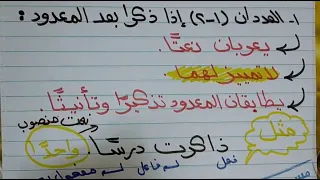 ١- العددان (١-٢) إذا ذكرا بعد المعدود :
يعربان نعتًا.
لا تمييز لهما.
يطابقان المعدود تذكيرًا وتأنيثًا.
نعت منصوب
مثل
ذاكرت درسًا واحدًا
فعل